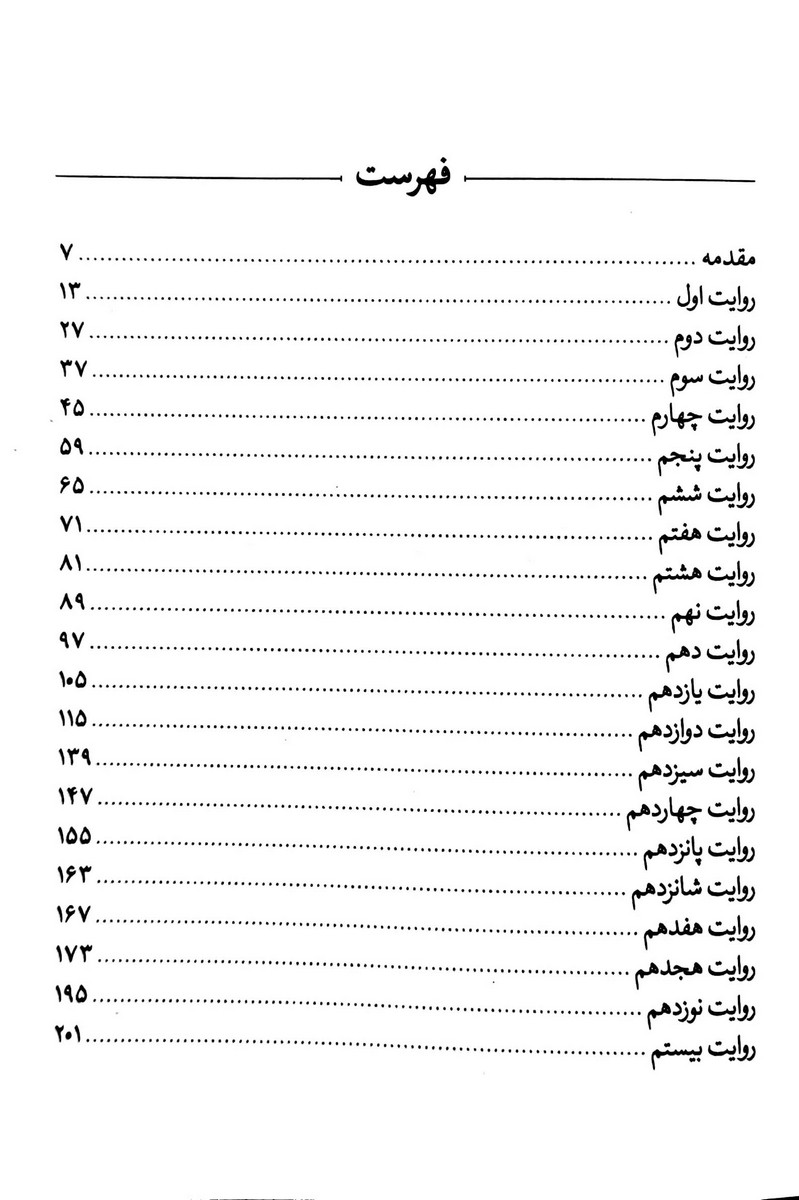 فهرست
مقدمه ........ ۷
روایت اول ........ ۱۳
روایت دوم ........ ۲۷
روایت سوم ........ ۳۷
روایت چهارم ........ ۴۵
روایت پنجم ........ ۵۹
روایت ششم ........ ۶۵
روایت هفتم ........ ۷۱
روایت هشتم ........ ۸۱
روایت نهم ........ ۸۹
روایت دهم ........ ۹۷
روایت یازدهم ........ ۱۰۵
روایت دوازدهم ........ ۱۱۵
روایت سیزدهم ........ ۱۳۹
روایت چهاردهم ........ ۱۴۷
روایت پانزدهم ........ ۱۵۵
روایت شانزدهم ........ ۱۶۳
روایت هفدهم ........ ۱۶۷
روایت هجدهم ........ ۱۷۳
روایت نوزدهم ........ ۱۹۵
روایت بیستم ........ ۲۰۱